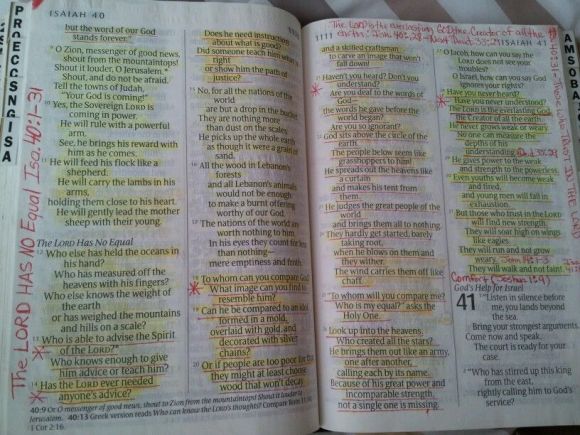 ISAIAH 40
but the word of our God
stands forever."
9 O Zion, messenger of good news,
shout from the mountaintops!
Shout it louder, O Jerusalem.*
Shout, and do not be afraid.
Tell the towns of Judah,
"Your God is coming!"
10 Yes, the Sovereign LORD is
coming in power.
He will rule with a powerful
arm.
See, he brings his reward with
him as he comes.
11 He will feed his flock like a
shepherd.
He will carry the lambs in his
arms,
holding them close to his heart.
He will gently lead the mother
sheep with their young.
The LORD Has No Equal
12 Who else has held the oceans in
his hand?
Who has measured off the
heavens with his fingers?
Who else knows the weight of
the earth
or has weighed the mountains
and hills on a scale?
13 Who is able to advise the Spirit
of the LORD?*
Who knows enough to give
him advice or teach him?
14 Has the LORD ever needed
anyone's advice?
The LORD HAS NO Equal Isa. 40:1-31
Does he need instruction
about what is good?
Did someone teach him what is
right
or show him the path of
justice?
15 No, for all the nations of the
world
are but a drop in the bucket.
They are nothing more
than dust on the scales.
He picks up the whole earth
as though it were a grain of
sand.
16 All the wood in Lebanon's
forests
and all Lebanon's animals
would not be enough
to make a burnt offering
worthy of our God.
17 The nations of the world are
worth nothing to him.
In his eyes they count for less
than nothing—
mere emptiness and froth.
18 To whom can you compare God?
What image can you find to
resemble him?
19 Can he be compared to an idol
formed in a mold,
overlaid with gold, and
decorated with silver
chains?
20 Or if people are too poor for that,
they might at least choose
wood that won't decay
40:9 Or O messenger of good news, shout to Zion from the mountaintops! Shout it louder to
Jerusalem. 40:13 Greek version reads Who can know the LORD's thoughts? Compare Rom 11:34;
1 Cor 2:16.
The LORD is the everlasting GOD, the Creator of all the
1111
ISAIAH 41
and a skilled craftsman
to carve an image that won't
fall down!
21 Haven't you heard? Don't you
understand?
Are you deaf to the words of
God—
the words he gave before the
world began?
Are you so ignorant?
22 God sits above the circle of the
earth.
The people below seem like
grasshoppers to him!
He spreads out the heavens like
a curtain
and makes his tent from
them.
23 He judges the great people of the
world
and brings them all to nothing.
24 They hardly get started, barely
taking root,
when he blows on them and
they wither.
The wind carries them off like
chaff.
25 "To whom will you compare me?
Who is my equal?" asks the
Holy One.
26 Look up into the heavens.
Who created all the stars?
He brings them out like an army,
one after another,
calling each by its name.
Because of his great power and
incomparable strength,
not a single one is missing.
27 O Jacob, how can you say the
LORD does not see your
troubles?
O Israel, how can you say God
ignores your rights?
28 Have you never heard?
Have you never understood?
The LORD is the everlasting God,
the Creator of all the earth.
He never grows weak or weary.
No one can measure the
depths of his
understanding.
29 He gives power to the weak
and strength to the powerless.
30 Even youths will become weak
and tired,
and young men will fall in
exhaustion.
31 But those who trust in the LORD
will find new strength.
They will soar high on wings
like eagles.
They will run and not grow
weary.
They will walk and not faint.
God's Help for Israel
41
1 "Listen in silence before
me, you lands beyond
the sea.
Bring your strongest arguments.
Come now and speak.
The court is ready for your
case.
2 "Who has stirred up this king
from the east,
rightly calling him to God's
service?